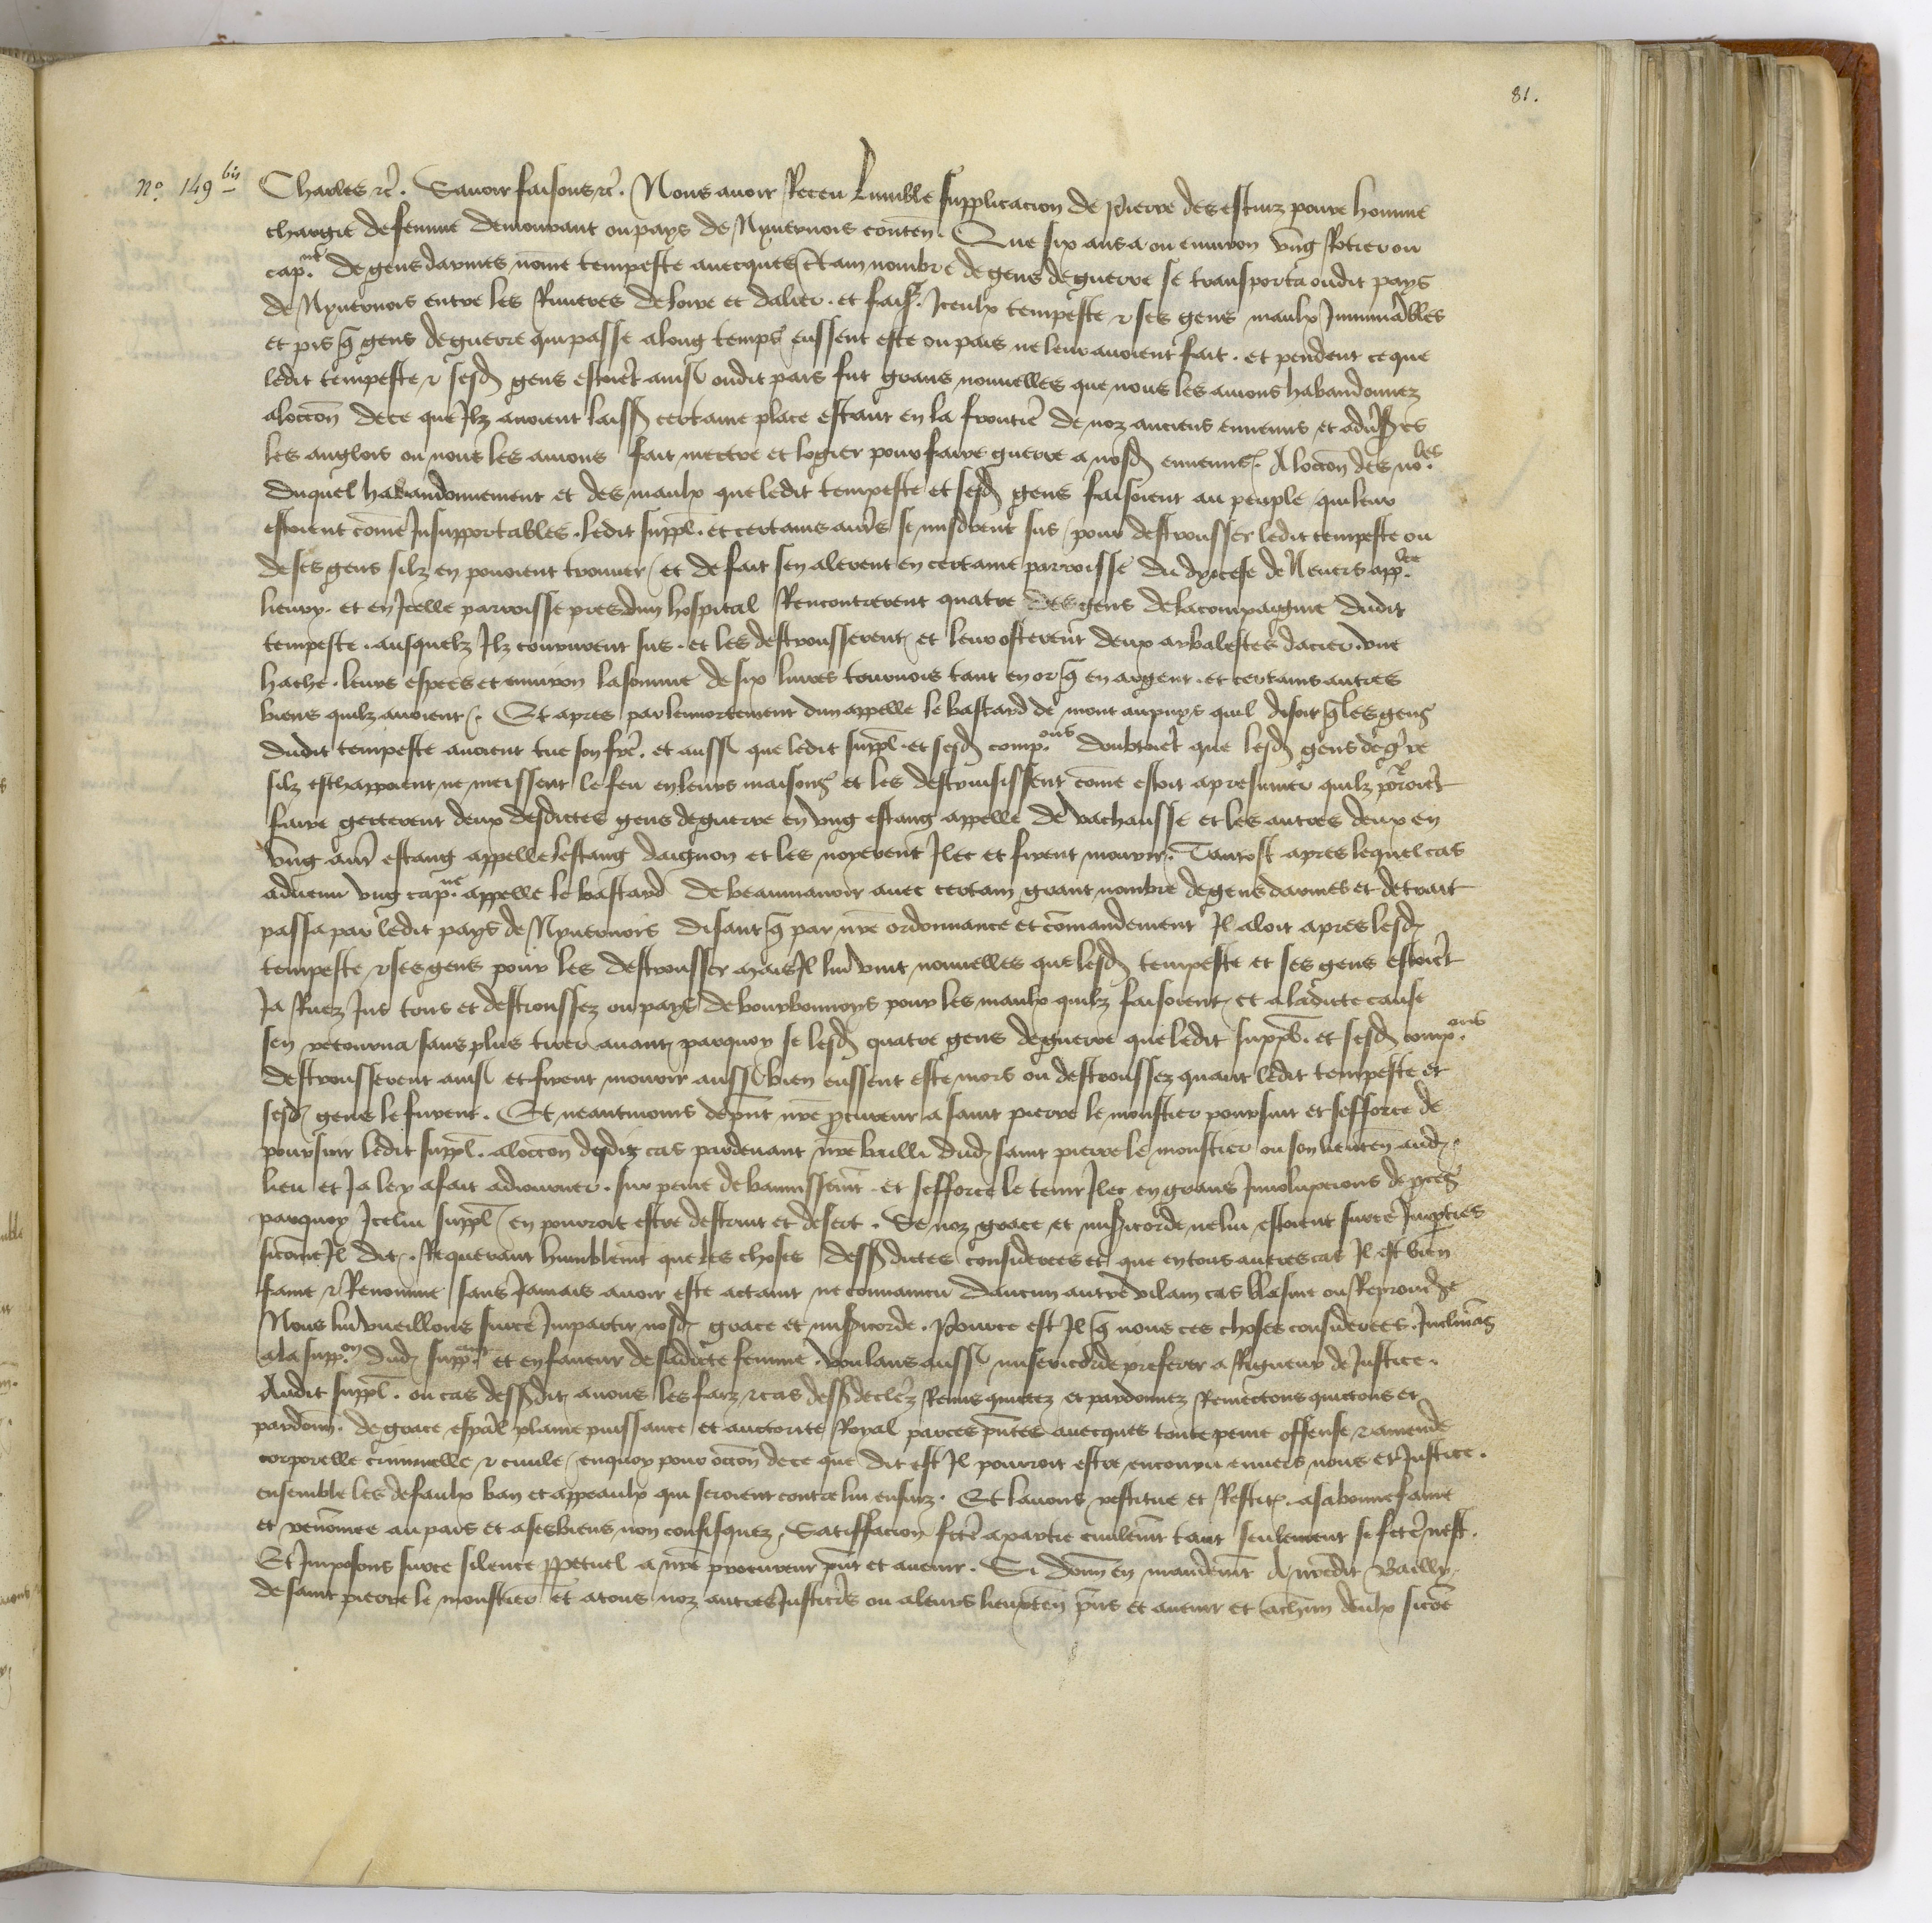 81.
No. 149 bis
Charles etc. Savoir faisons etc. Nous avoir Receu lumble supplicacion de Pierre des estinz povre homme
chargie de femme demourant ou pays de Nyvernois conten. Que six ans a ou environ ung Rotier ou
cap.ne de gens darmes nome tempeste avecques ctain nombre de gens de guerre se transporta oudit pays
de Nyvernois entre les Rivieres de loire et dalier. et fais.t Iceulx tempeste & ses gens maulx Innumables
et pis q gens de guerre qui passe a long temps eussent este ou pais ne leur avoient fait. et pendent ce que
ledit tempeste & sesd gens estoiet ainsi oudit pais fut grans nouvelles que nous les avions habandonnez
a loccon de ce que Ilz avoient laiss certaine place estant en la frontie de noz anciens ennemis et advsres
les anglois ou nous les avions fait mectre et logier pour faire guerre a nosd ennemis. A loccon des no.les
duquel habandonnement et des maulx que ledit tempeste et sesd gens faisoient au peuple qui leur
estoient come Insupportables. ledit suppl. et certains autrs se misdrent sus pour destrousser ledit tempeste ou
de ses gens silz en povoient trouver et de fait sen alerent en certaine parroisse du dyocese de Nevers app.lee
lieury. et en Icelle parroisse pres dun hospital Rencontrerent quatre des gens de la compaignie dudit
tempeste. ausquelz Ilz coururent sus. et les destrousserent et leur osterent deux arbalestes dacier. une
hache. leurs espees et environ la somme de six livres tournois tant en or q en argent. et certains autres
biens quilz avoient. Et apres par lennortement dun appelle le bastard de mont aupuys quil disoit q les gens
dudit tempeste avoient tue son fre. et aussi que ledit suppl. et sesd comp.ons doubtoiet que lesd gens de gre
silz eschappoient ne meissent le feu en leurs maisons et les destruisissent come estoit a presumer quilz porroiet
faire getterent deux desdictes gens de guerre en ung estang appelle de vachausse et les autres deux en
ung autr estang appelle lestang daignon et les noyerent Ilec et firent mourir. Tantost apres lequel cas
advenu ung cap.ne appelle le bastard de beaumanoir avec certain grant nombre de gens darmes et de trait
passa par ledit pays de Nyvernois disant q par nre ordonnance et comandement Il aloit apres lesd
tempeste & ses gens pour les destrousser mais Il lui vint nouvelles que lesd tempeste et ses gens estoiet
Ja Ruez Jus tous et destroussez ou pays de bourbonnoys pour les maulx quilz faisoient et a ladicte cause
sen retourna sans plus tirer avant. parquoy se lesd quatre gens de guerre que ledit suppl. et sesd comp.ons
destrousserent ainsi et firent mourir aussi bien eussent este mors ou destroussez quant ledit tempeste et
sesd gens le furent. Et neantmoins de pnt nre procureur a saint pierre le monstier poursuit et sefforce de
poursuir ledit suppl. a loccon desdiz cas pardevant nre bailli dud saint pierre le monstier ou son lieuten aud
lieu et Ja ley a fait adiourner. sur peine de bannissemt. et sefforce le tenir Ilec en grans Involucions de pces
parquoy Icelui suppl en pourroit estre destruit et desert. Se noz grace et misicorde ne lui estoient surce Imparties
sicome Il dit. Requerant humblemt que les choses dessdictes considerees et que en tous autres cas Il est bien
fame & Renomme sans Jamais avoir este actaint ne convaincu daucun autre vilain cas blasme ou Reprouche
Nous lui vueillons surce Impartir nosd grace et misicorde. Pource est Il q nous ces choses considerees. Inclinas
a la supp.on dud supp.ant et en faveur de sadicte femme. voulans aussi misericorde preferer a Rigueur de Justice.
Audit suppl. ou cas dessdit avons les faiz & cas dess declrez Remis quictez et pardonnez Remectons quictons et
pardonn. de grace espal plaine puissance et auctorite Royal par ces pntes avecques toute peine offense & amende
corporelle criminelle & civile enquoy pour occon de ce que dit est Il pourroit estre encouru envers nous et Justice.
ensemble les defaulx ban et appeaulx qui seroient contre lui ensuiz. Et lavons restitue et Restit. a sa bonne fame
et renomee au pais et a ses biens non confisquez. Satisfacion fcte a partie civilemt tant seulement se fcte nest.
Et Imposons surce silence ppetuel a nre procureur pnt et avenir. Si donn en mandemt A nredit Bailly
de saint pierre le monstier et a tous noz autres Justiciers ou a leurs lieuxten pns et avenir et a chun deulx sicoe